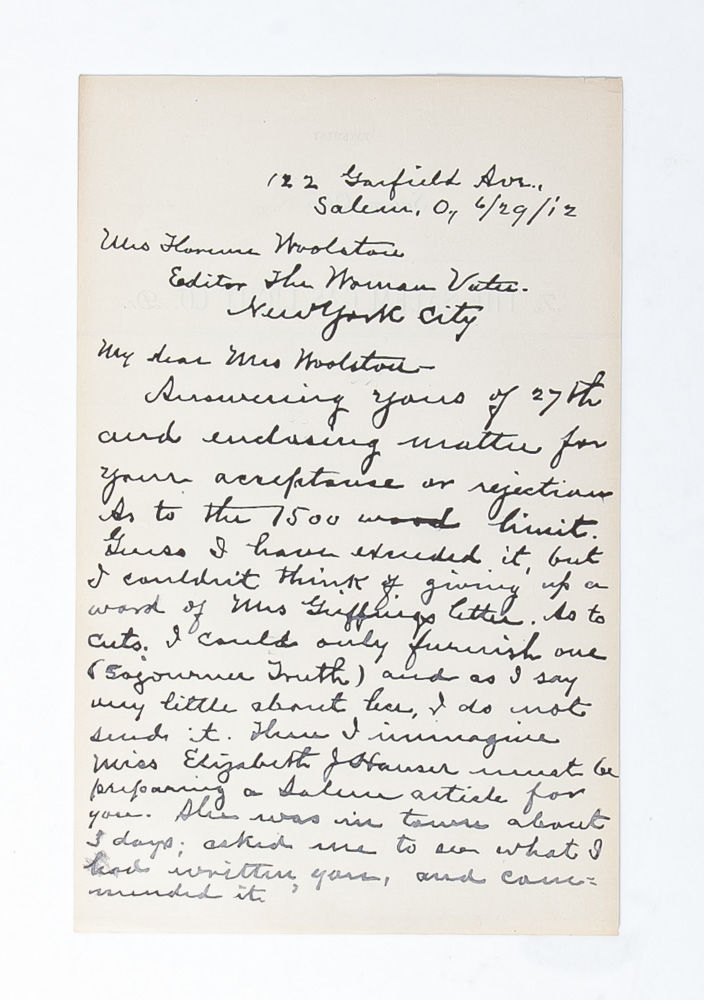 122 Garfield Ave.,
Salem, O, 6/29/12
Mrs Florence Woolston
Editor The Woman Voter.
New York City
My dear Mrs Woolston—
Answering yours of 27th
and enclosing matter for
your acceptance or rejection
As to the 1500 word limit.
Guess I have exceeded it, but
I couldn't think of giving up a
word of Mrs Griffings letter. As to
cuts. I could only furnish one
(Sojourner Truth) and as I say
very little about her, I do not
send it. Then I immagine
Miss Elizabeth J Hauser must be
preparing a Salem article for
you. She was in town about
3 days; asked me to see what I
had written you, and com=
mended it.